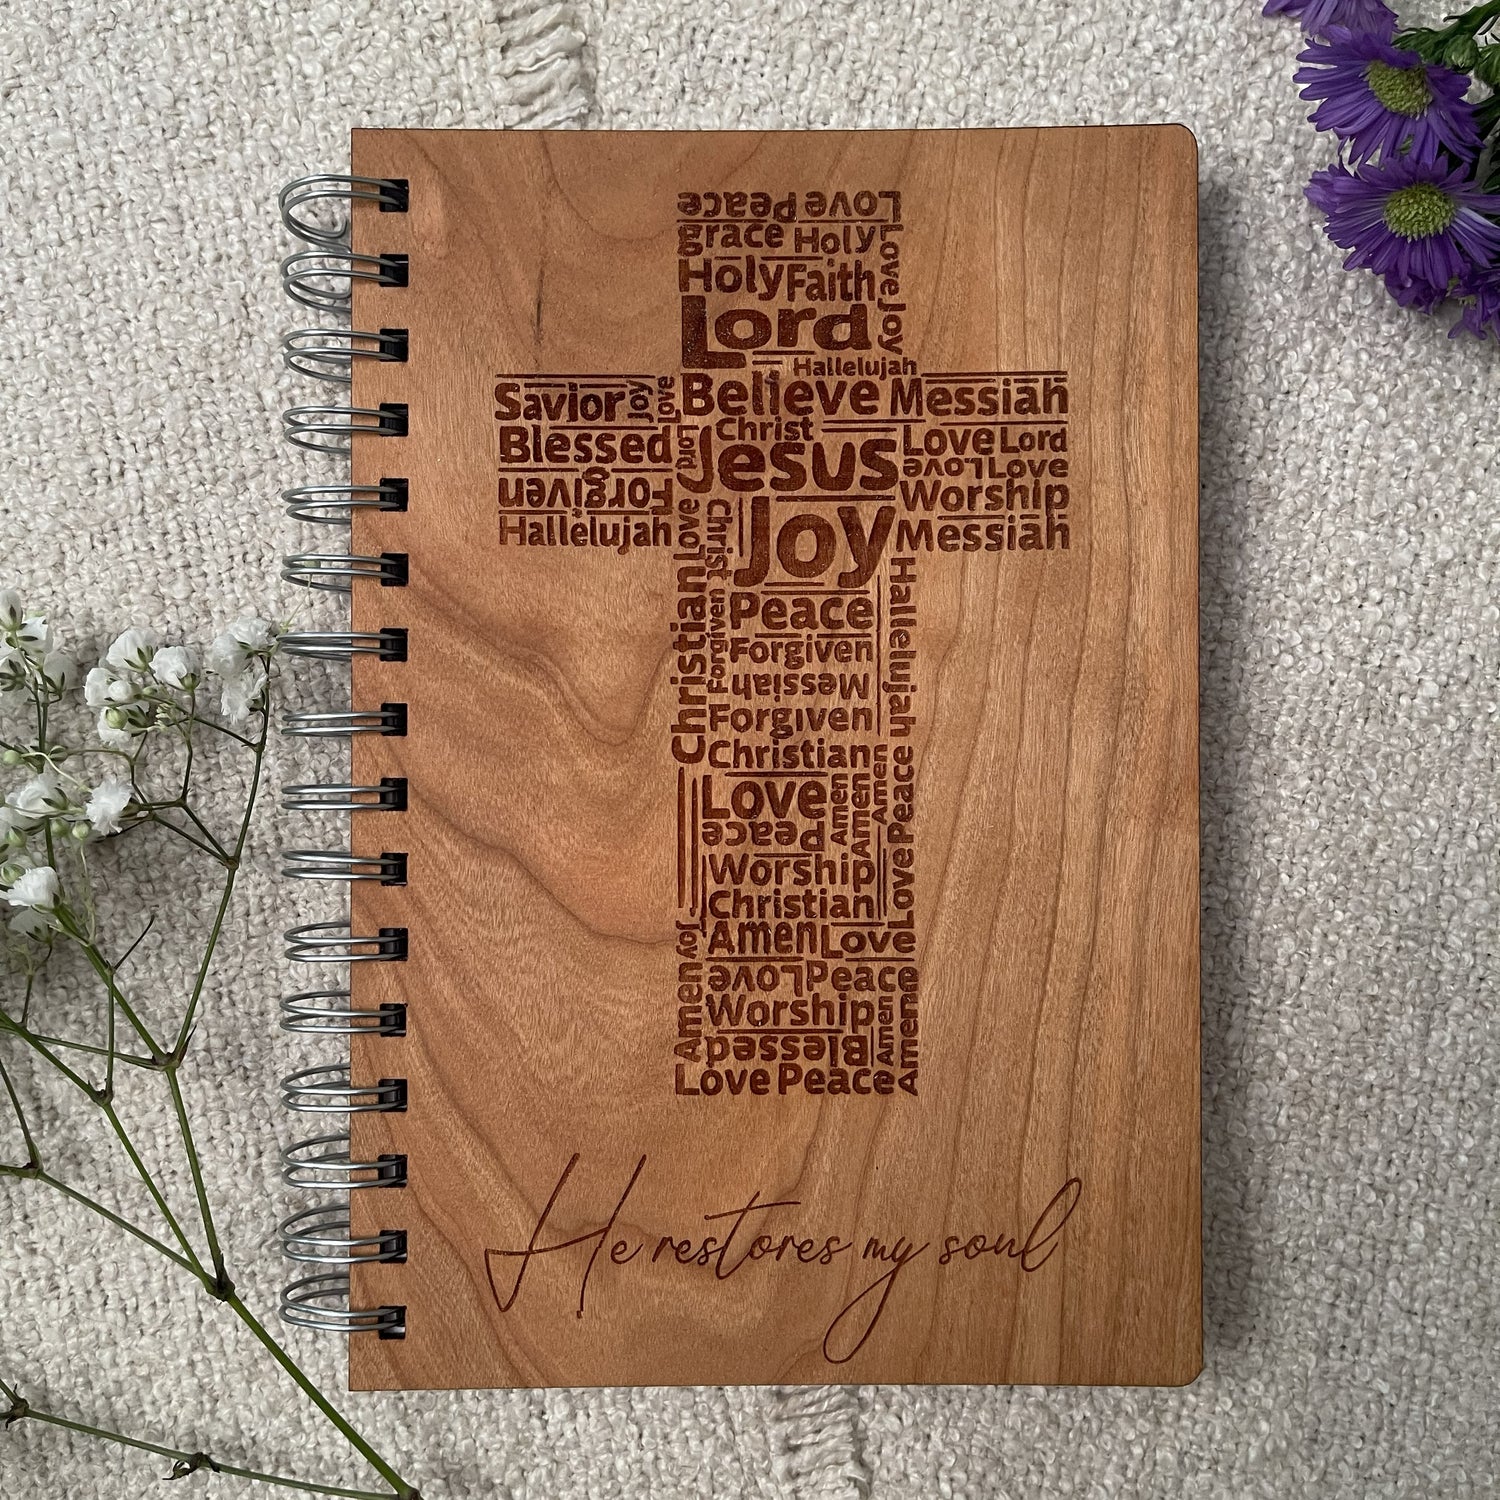 Love Peace
grace Holy
Love
Holy Faith
Joy
Lord
Hallelujah
Savior Joy Love Believe Messiah
Christ
Blessed Lord Jesus Love Lord
Love Love
Forgiven Worship
Hallelujah Love Christ Joy Messiah
Christian Forgiven Peace Hallelujah
Forgiven
Messiah
Forgiven
Christian
Love Amen Amen Amen Peace
Peace
Worship
Christian Love
Joy Amen Love
Love Peace
Amen Worship Amen Amen
Blessed
Love Peace
He restores my soul